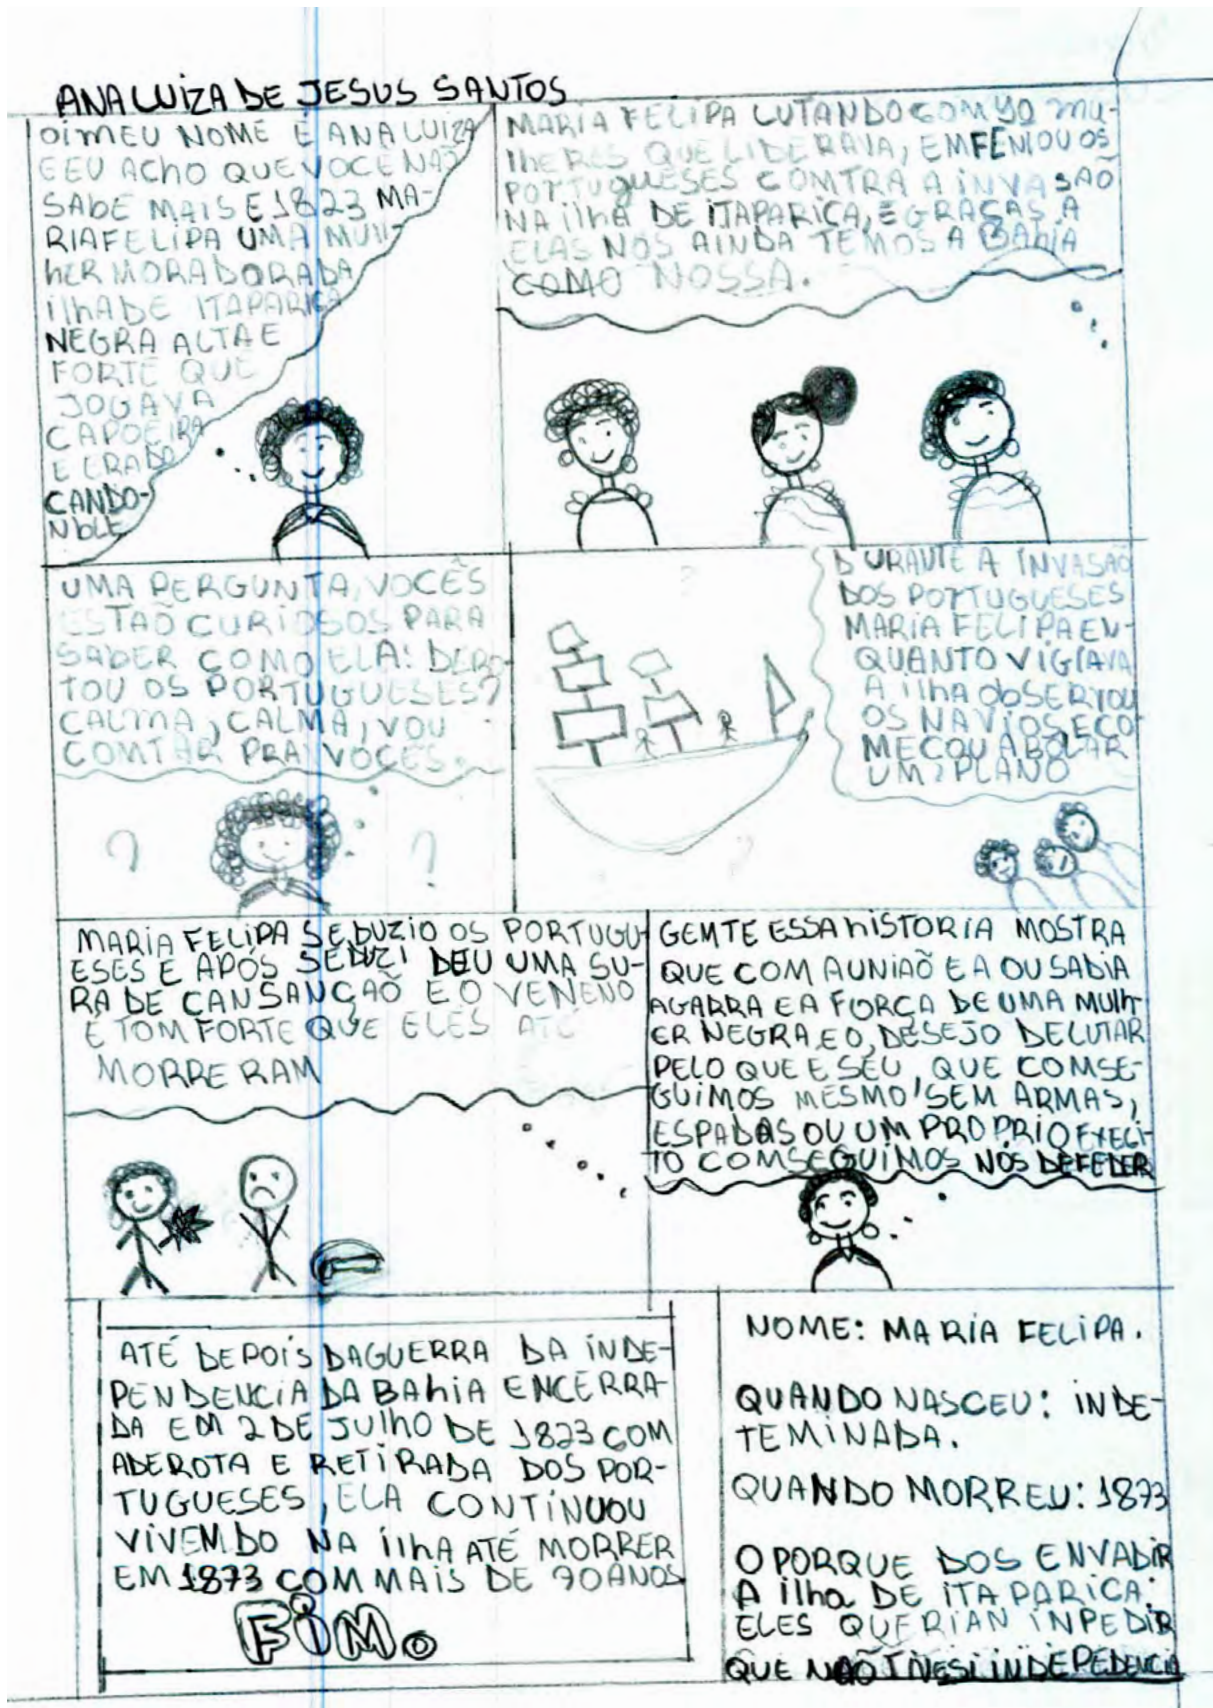 ANA LUIZA DE JESUS SANTOS
OI MEU NOME É ANA LUIZA
E EU ACHO QUE VOCE NAO
SABE MAIS E 1823 MA-
RIA FELIPA UMA MULH-
HER MORADORA DA
ILHA DE ITAPARICA
NEGRA ALTA E
FORTE QUE
JOGAVA
CAPOEIRA
E ERA DO
CANDO-
NBLE
MARIA FELIPA LUTANDO COM 40 MU-
LHERES QUE LIDERAVA, EMFENIOU OS
PORTUGUESES COMTRA A INVASÃO
NA ILHA DE ITAPARICA, E GRAÇAS A
ELAS NÓS AINDA TEMOS A BAHIA
COMO NOSSA.
UMA PERGUNTA, VOCÊS
ESTAÕ CURIOSOS PARA
SABER COMO ELA: DERO-
TOU OS PORTUGUESES?
CALMA, CALMA, VOU
COMTAR PRA VOCÊS.
? ?
DURANTE A INVASÃO
DOS PORTUGUESES
MARIA FELIPA EN-
QUANTO VIGIAVA
A ILHA OBSERVOU
OS NAVIOS, E CO-
MEÇOU A BOLAR
UM PLANO
MARIA FELIPA SEDUZIO OS PORTUGU-
ESES E APÓS SEDUZI DEU UMA SU-
RA DE CANSANÇÃO E O VENENO
E TOM FORTE QUE ELES ATÉ
MORRERAM
GEMTE ESSA HISTORIA MOSTRA
QUE COM A UNIAÕ E A OUSADIA
AGARRA E A FORÇA DE UMA MULH-
ER NEGRA, E O, DESEJO DE LUTAR
PELO QUE E SEU, QUE COMSE-
GUIMOS MESMO SEM ARMAS,
ESPADAS OU UM PROPRIO EXECI-
TO COMSEGUIMOS NÓS DEFEDER
ATÉ DEPOIS DAGUERRA DA INDE-
PENDENCIA DA BAHIA ENCERRA-
DA EM 2 DE JULHO DE 1823 COM
ADEROTA E RETIRADA DOS POR-
TUGUESES, ELA CONTINUOU
VIVEMDO NA ILHA ATÉ MORRER
EM 1873 COM MAIS DE 70 ANOS
FIM.
NOME: MARIA FELIPA.
QUANDO NASCEU: INDE-
TEMINADA.
QUANDO MORREU: 1873
O PORQUE DOS ENVADIR
A ILHA DE ITAPARICA:
ELES QUERIAN INPEDIR
QUE INDEPEDENCIA